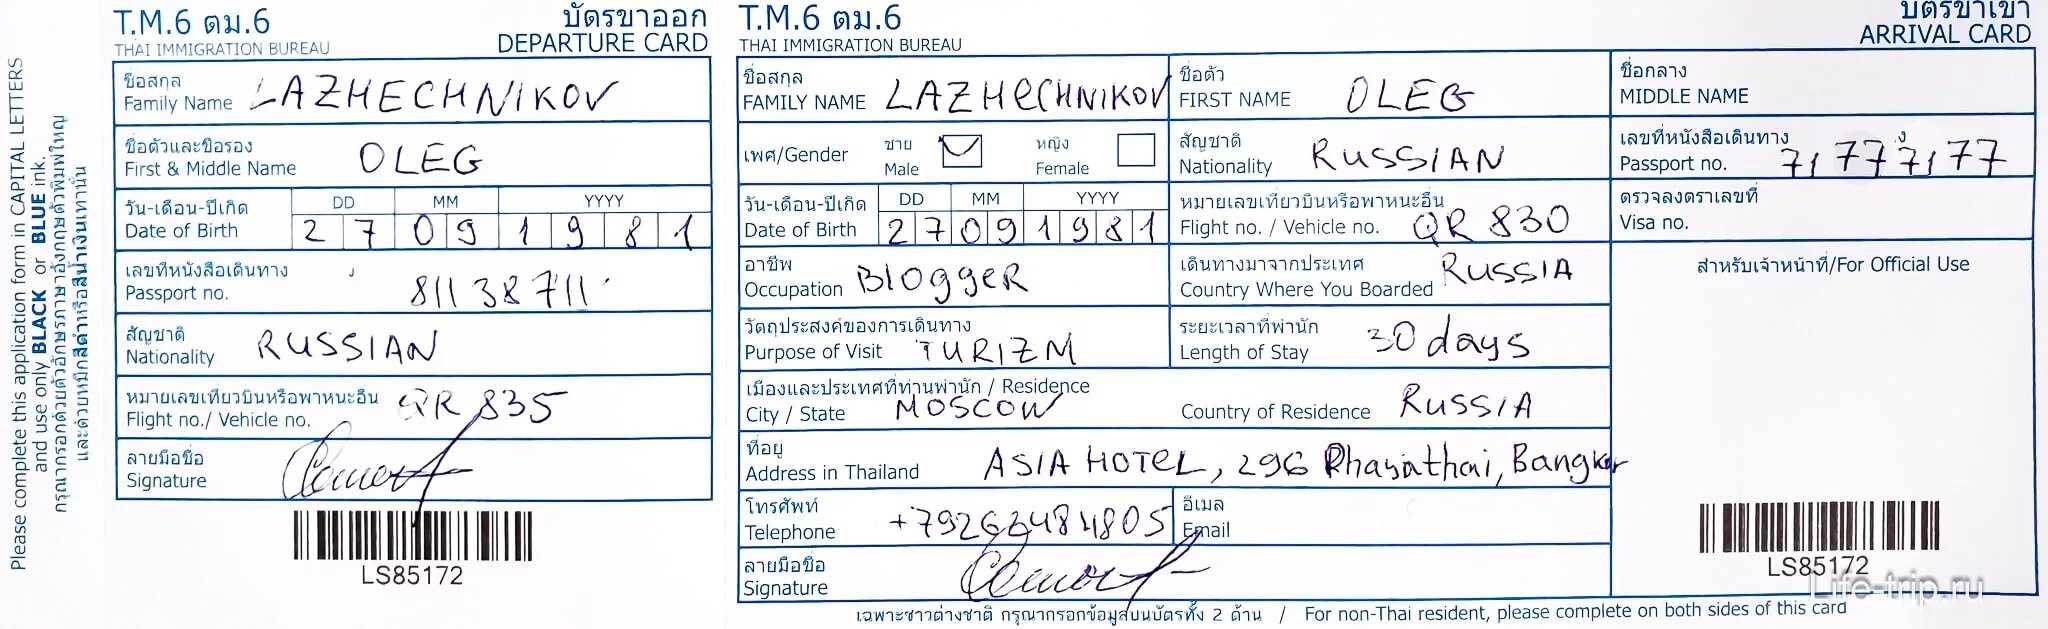 Please complete this application form in CAPITAL LETTERS
and use only BLACK or BLUE ink.
กรุณากรอกด้วยตัวอักษรภาษาอังกฤษตัวพิมพ์ใหญ่
และด้วยหมึกสีดำหรือสีน้ำเงินเท่านั้น
T.M.6 ตม.6 บัตรขาออก
THAI IMMIGRATION BUREAU DEPARTURE CARD
ชื่อสกุล
Family Name LAZHECHNIKOV
ชื่อตัวและชื่อรอง
First & Middle Name OLEG
วัน-เดือน-ปีเกิด DD MM YYYY
Date of Birth 2 7 0 9 1 9 8 1
เลขที่หนังสือเดินทาง
Passport no. 81138711
สัญชาติ
Nationality RUSSIAN
หมายเลขเที่ยวบินหรือพาหนะอื่น
Flight no./ Vehicle no. QR 835
ลายมือชื่อ
Signature
LS85172
T.M.6 ตม.6 บัตรขาเข้า
THAI IMMIGRATION BUREAU ARRIVAL CARD
ชื่อสกุล ชื่อตัว ชื่อกลาง
FAMILY NAME LAZHECHNIKOV FIRST NAME OLEG MIDDLE NAME
เพศ/Gender ชาย Male หญิง Female
สัญชาติ
Nationality RUSSIAN
เลขที่หนังสือเดินทาง
Passport no. 71777177
วัน-เดือน-ปีเกิด DD MM YYYY
Date of Birth 2 7 0 9 1 9 8 1
หมายเลขเที่ยวบินหรือพาหนะอื่น
Flight no. / Vehicle no. QR 830
ตรวจลงตราเลขที่
Visa no.
อาชีพ
Occupation BloggeR
เดินทางมาจากประเทศ
Country Where You Boarded RUSSIA
สำหรับเจ้าหน้าที่/For Official Use
วัตถุประสงค์ของการเดินทาง
Purpose of Visit TURIZM
ระยะเวลาที่พำนัก
Length of Stay 30 days
เมืองและประเทศที่ท่านพำนัก / Residence
City / State MOSCOW Country of Residence RUSSIA
ที่อยู่
Address in Thailand ASIA HOTEL, 296 Phayathai, Bangkok
โทรศัพท์
Telephone +79263484805
อีเมล
Email
ลายมือชื่อ
Signature
LS85172
Life-trip.ru
เฉพาะชาวต่างชาติ กรุณากรอกข้อมูลบนบัตรทั้ง 2 ด้าน / For non-Thai resident, please complete on both sides of this card